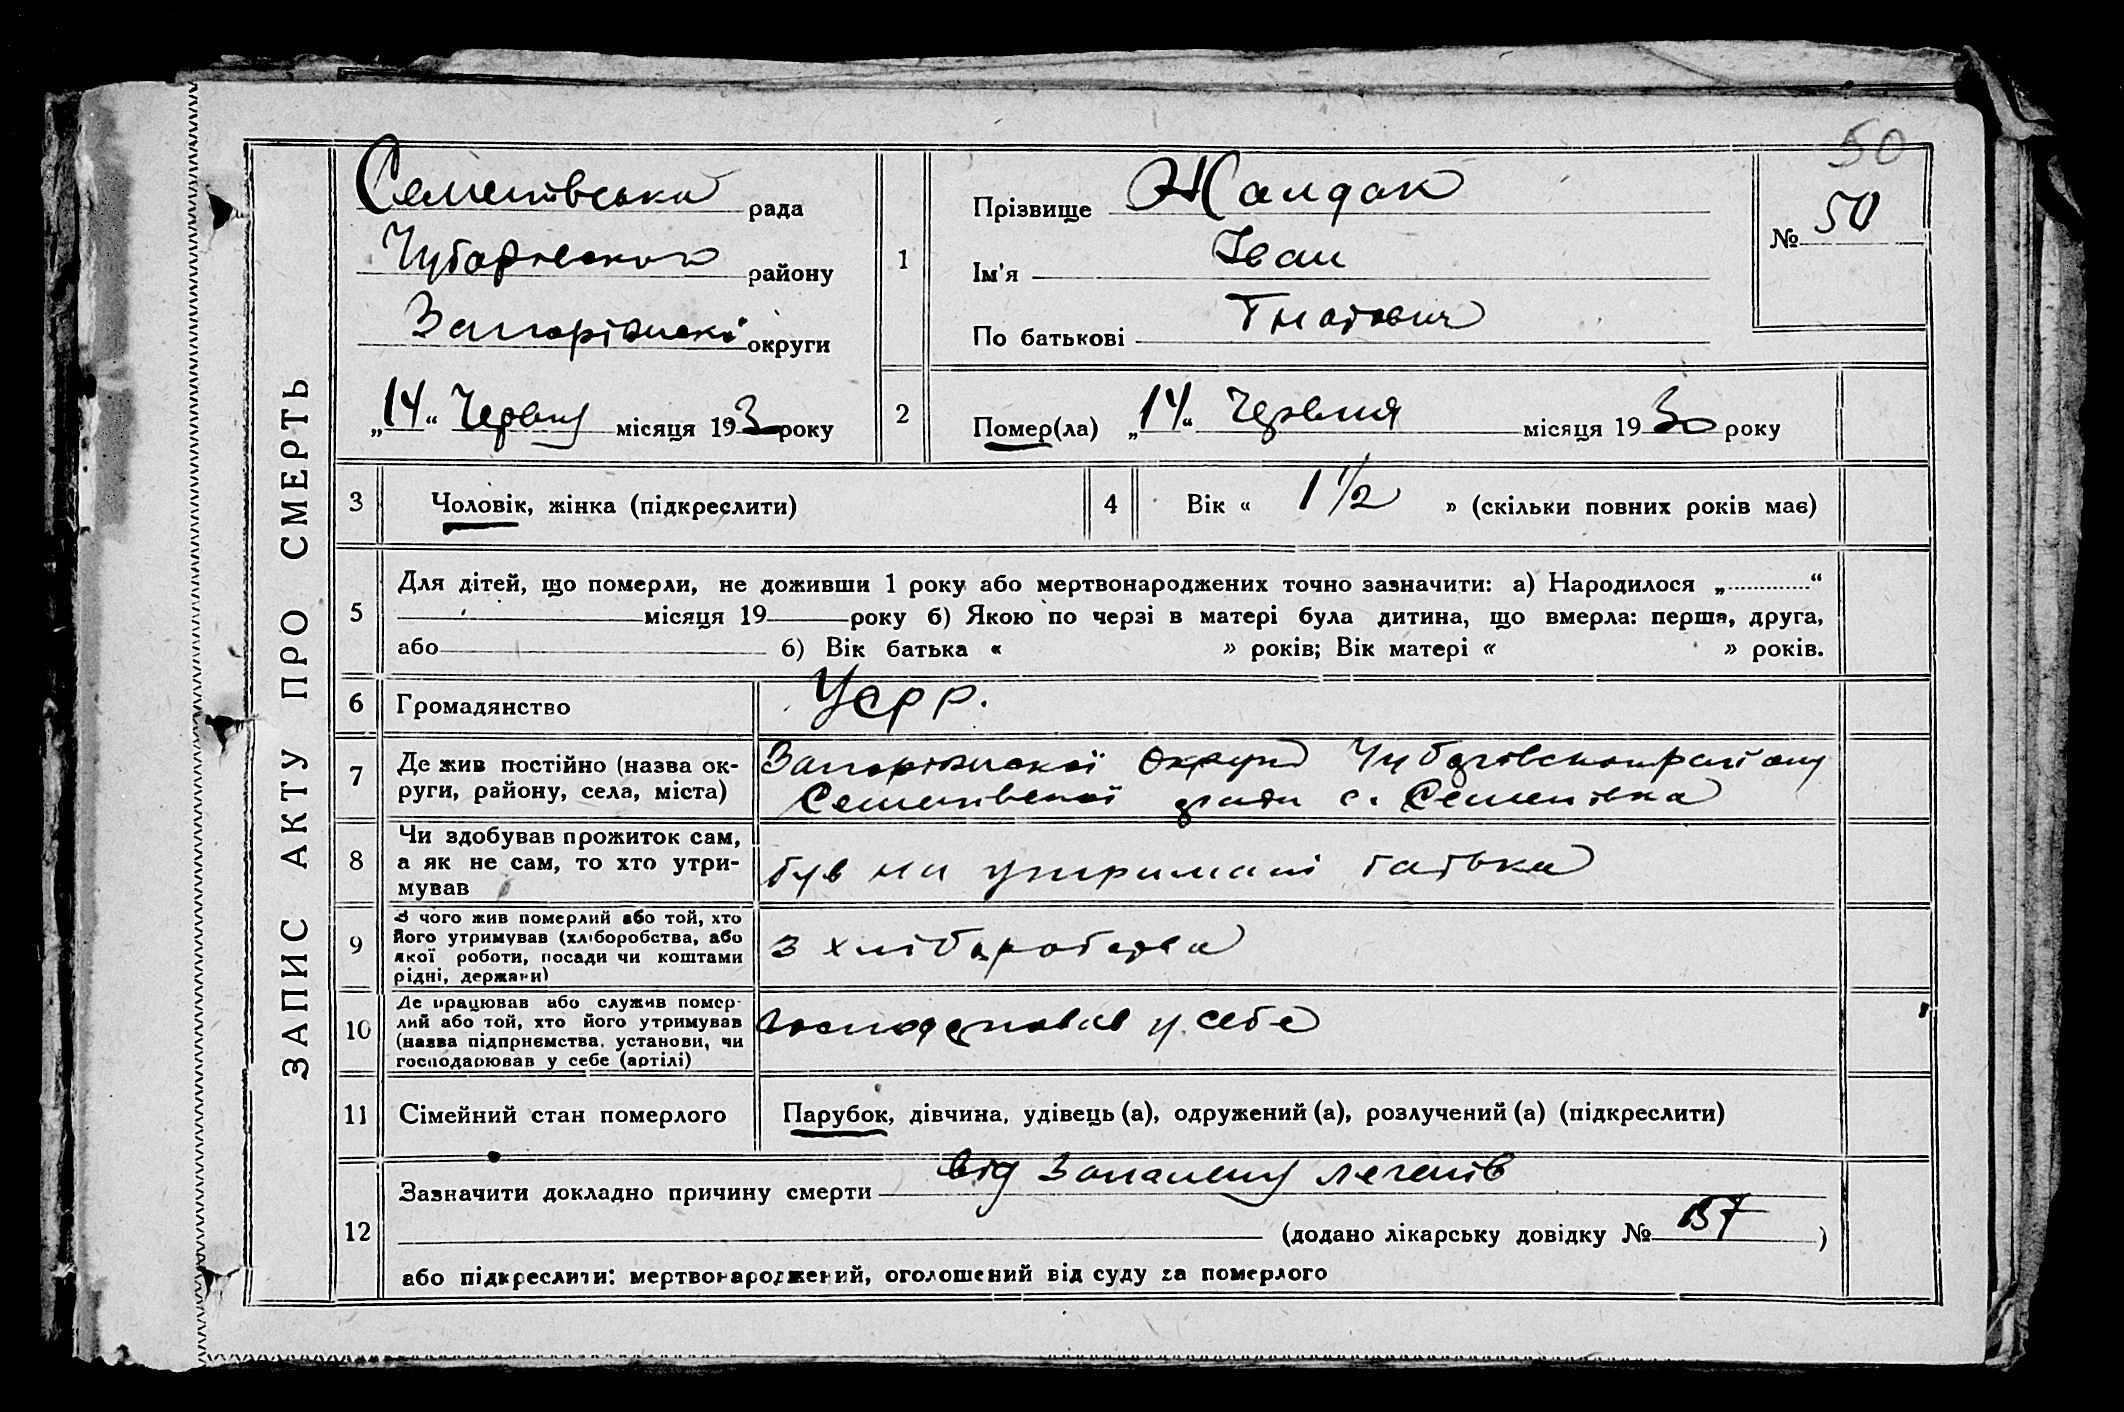 50
ЗАПИС АКТУ ПРО СМЕРТЬ
Семенівська рада
Чубарівського району
Запоріжської округи
„14“ Червня місяця 1930 року
1
Прізвище Жалдак
Ім'я Іван
По батькові Гнатович
№ 50
2
Помер(ла) „14“ Червня місяця 1930 року
3 Чоловік, жінка (підкреслити)
4 Вік « 1 1/2 » (скільки повних років має)
5
Для дітей, що померли, не доживши 1 року або мертвонароджених точно зазначити: а) Народилося „ “
місяця 19 року б) Якою по черзі в матері була дитина, що вмерла: перша, друга,
або б) Вік батька « » років; Вік матері « » років.
6 Громадянство Усрр.
7
Де жив постійно (назва ок-
руги, району, села, міста)
Запоріжської Округи Чубарівського району
Семенівської ради с. Семенівка
8
Чи здобував прожиток сам,
а як не сам, то хто утри-
мував
був на утриманні батька
9
З чого жив померлий або той, хто
його утримував (хліборобства, або
якої роботи, посади чи коштами
рідні, держави)
з хліборобства
10
Де працював або служив помер-
лий або той, хто його утримував
(назва підприємства, установи, чи
господарював у себе (артілі)
господарював у себе
11 Сімейний стан померлого Парубок, дівчина, удівець (а), одружений (а), розлучений (а) (підкреслити)
12
Зазначити докладно причину смерти від запалення легенів
(додано лікарську довідку № 157 )
або підкреслити: мертвонароджений, оголошений від суду за померлого